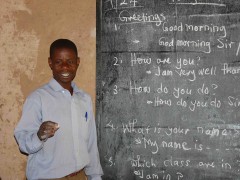 Greetings
1. Good morning
- Good morning Sir
2. How are you?
- I am very well than
3. How do you do?
- How do you do Sir
4. What is your name?
- My name is ...
5. Which class are in
I am in